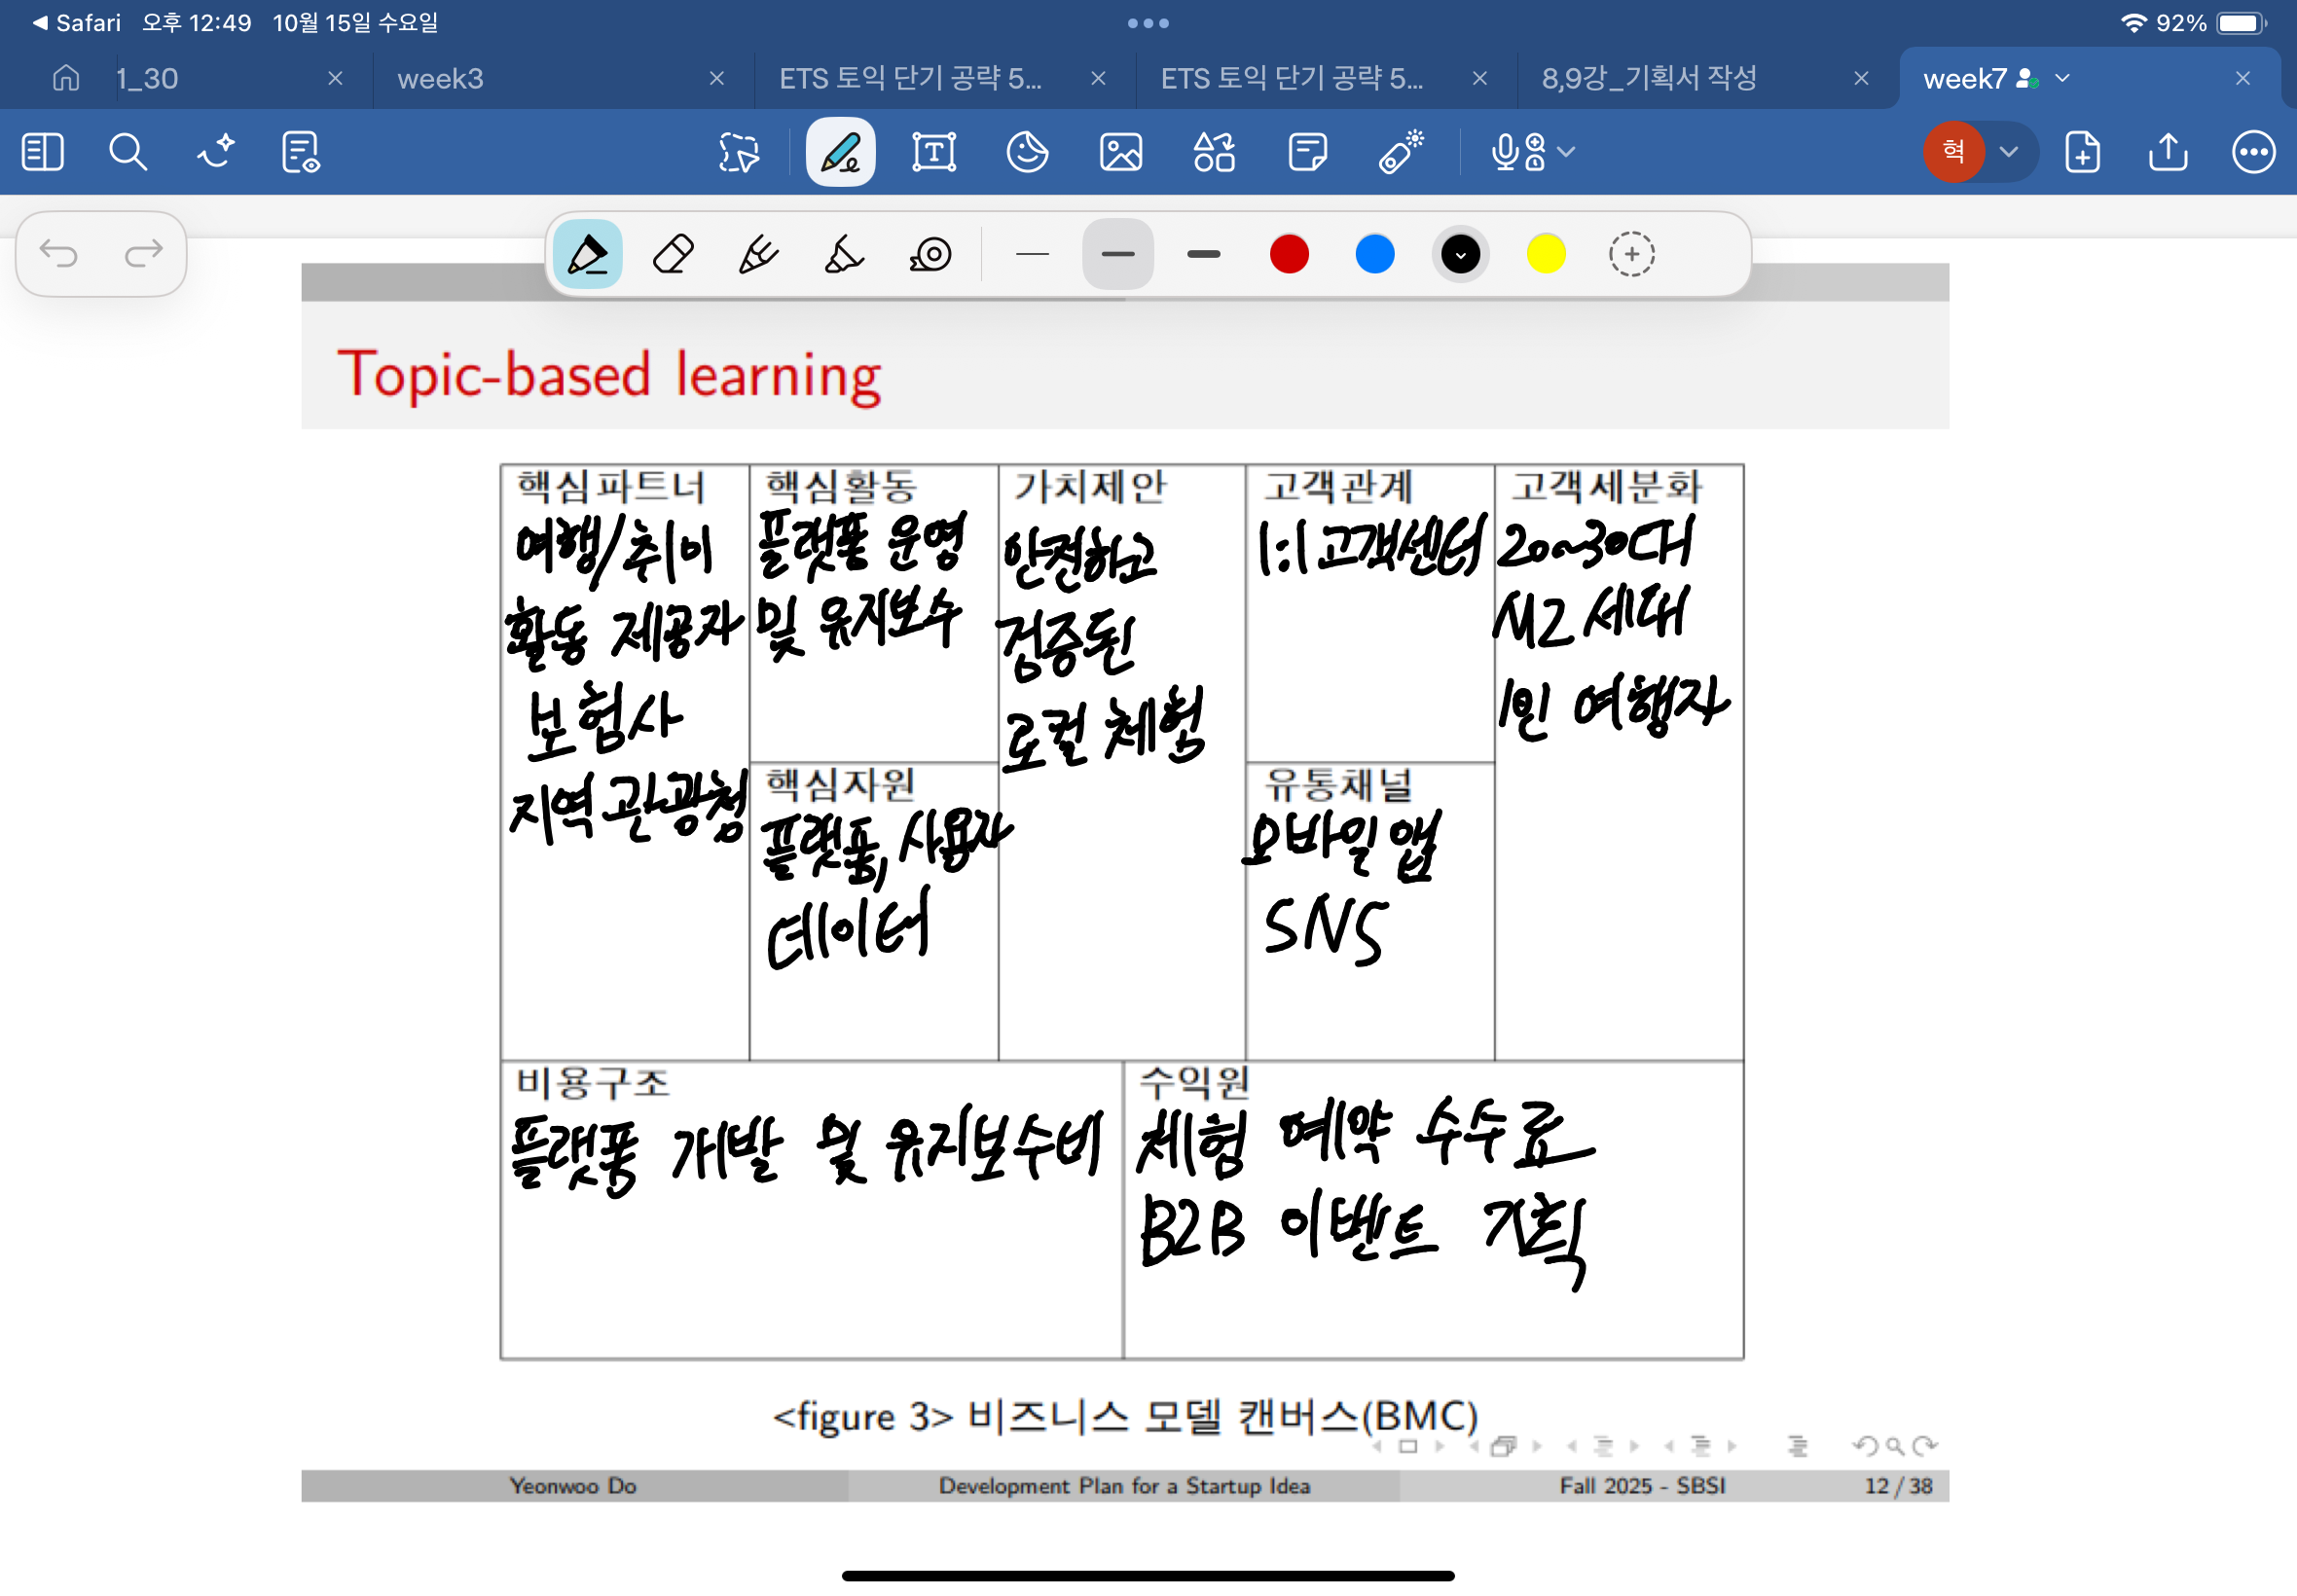 Safari 오후 12:49 10월 15일 수요일
92%
1_30
week3
ETS 토익 단기 공략 5...
ETS 토익 단기 공략 5...
8,9강_기획서 작성
week7
혁
Topic-based learning
핵심파트너
여행/취미
활동 제공자
보험사
지역 관광청
핵심활동
플랫폼 운영
및 유지보수
핵심자원
플랫폼, 사용자
데이터
가치제안
안전하고
검증된
로컬 체험
고객관계
1:1 고객센터
유통채널
모바일 앱
SNS
고객세분화
20~30대
MZ 세대
1인 여행자
비용구조
플랫폼 개발 및 유지보수비
수익원
체험 예약 수수료
B2B 이벤트 기획
<figure 3> 비즈니스 모델 캔버스(BMC)
Yeonwoo Do
Development Plan for a Startup Idea
Fall 2025 - SBSI
12 / 38